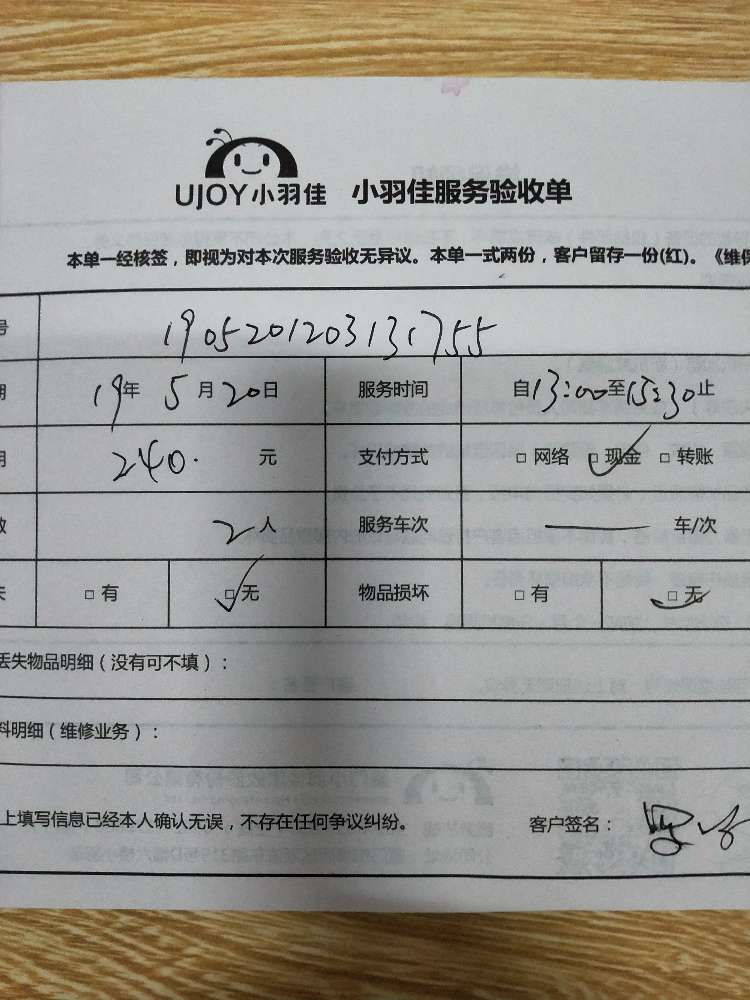 UJOY小羽佳 小羽佳服务验收单
本单一经核签，即视为对本次服务验收无异议。本单一式两份，客户留存一份(红)。《维保
号 190520120313 1755
期 19年 5月20日 服务时间 自13:00至15:30止
用 240. 元 支付方式 □ 网络 □ 现金 □ 转账
数 2人 服务车次 — 车/次
失 □ 有 □ 无 物品损坏 □ 有 □ 无
丢失物品明细（没有可不填）：
料明细（维修业务）：
上填写信息已经本人确认无误，不存在任何争议纠纷。 客户签名：